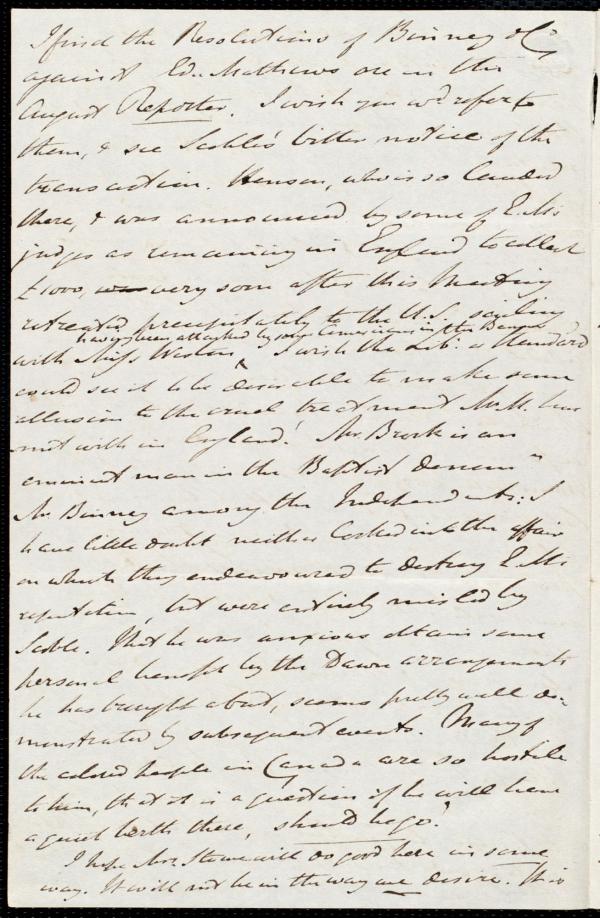 I find the Resolutions of Binney & Co
against Edw. Mathews are in the
August Reporter. I wish you wd refer to
them, & see Scoble's bitter notice of the
transaction. Henson, who is so lauded
there, & was announced by some of E. M's
judges as remaining in England to collect
£1000, very soon after this Meeting
retreated precipitately to the U.S. sailing
having been attacked by some Americans in this Banner
with Miss Weston ^ I wish the Lib: or Standard
could see it to be desirable to make some
allusion to the cruel treatment Mr. M. has
met with in England! Mr. Brock is an
eminent man in the Baptist denomn
Mr. Binney among the Independents: I
have little doubt neither looked into the affair
on which they endeavoured to destroy E. M's
reputation, but were entirely misled by
Scoble. That he was anxious obtain some
personal benefit by the Dawn arrangements
he has brought about, seems pretty well de-
monstrated by subsequent events. Many of
the colored people in Canada are so hostile
to him, that it is a question if he will have
a quiet berth there, should he go."
I hope Mrs. Stowe will do good here in some
way. It will not be in the way we desire. It is